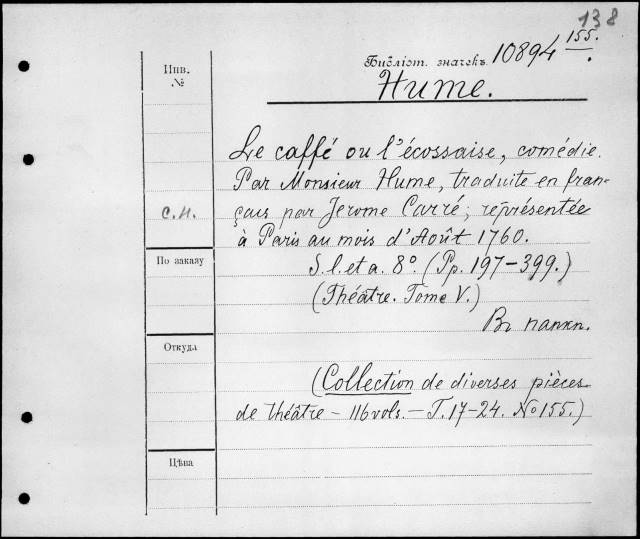 138
Библіот. значекъ 10894 155.
Инв.
№
Hume.
Le caffé ou l'écossaise, comédie.
Par Monsieur Hume, traduite en fran-
çais par Jerome Carré; représentée
с.н.
à Paris au mois d'Août 1760.
По заказу
S. l. et a. 8°. (Pp. 197-399.)
(Théâtre. Tome V.)
Въ папкѣ.
Откуда
(Collection de diverses pièces
de théâtre - 116 vols. - T. 17-24. No 155.)
Цѣна